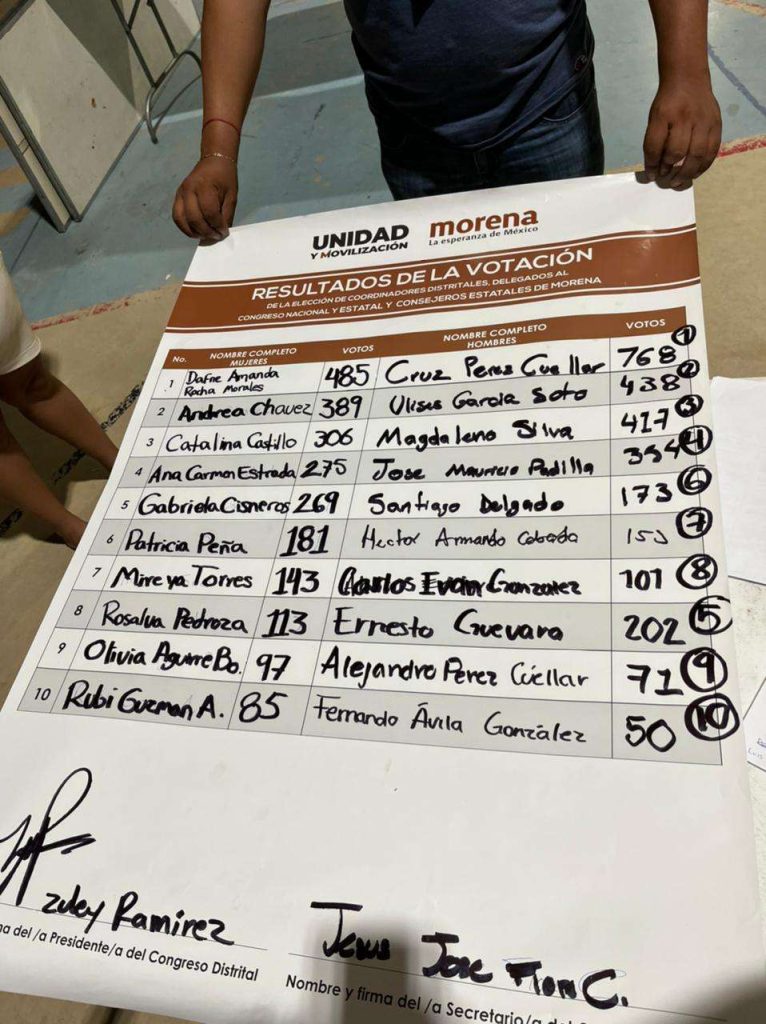 UNIDAD
Y MOVILIZACIÓN
morena
La esperanza de México
RESULTADOS DE LA VOTACIÓN
DE LA ELECCIÓN DE COORDINADORES DISTRITALES, DELEGADOS AL
CONGRESO NACIONAL Y ESTATAL Y CONSEJEROS ESTATALES DE MORENA
No. NOMBRE COMPLETO MUJERES VOTOS NOMBRE COMPLETO HOMBRES VOTOS
1 Dafne Amanda Rocha Morales 485 Cruz Perez Cuellar 768 1
2 Andrea Chavez 389 Ulises Garcia Soto 438 2
3 Catalina Castillo 306 Magdaleno Silva 417 3
4 Ana Carmen Estrada 275 Jose Mauricio Padilla 354 4
5 Gabriela Cisneros 269 Santiago Delgado 173 6
6 Patricia Peña 181 Hector Armando 7
7 Mireya Torres 143 Carlos Ivan Gonzalez 101 8
8 Rosalva Pedroza 113 Ernesto Guevara 202 5
9 Olivia Aguirre Bo. 97 Alejandro Perez Cuéllar 71 9
10 Rubi Guzman A. 85 Fernando Ávila González 50 10
Zuley Ramirez
Jesus Jose C.
del /a Presidente/a del Congreso Distrital
Nombre y firma del /a Secretario/a